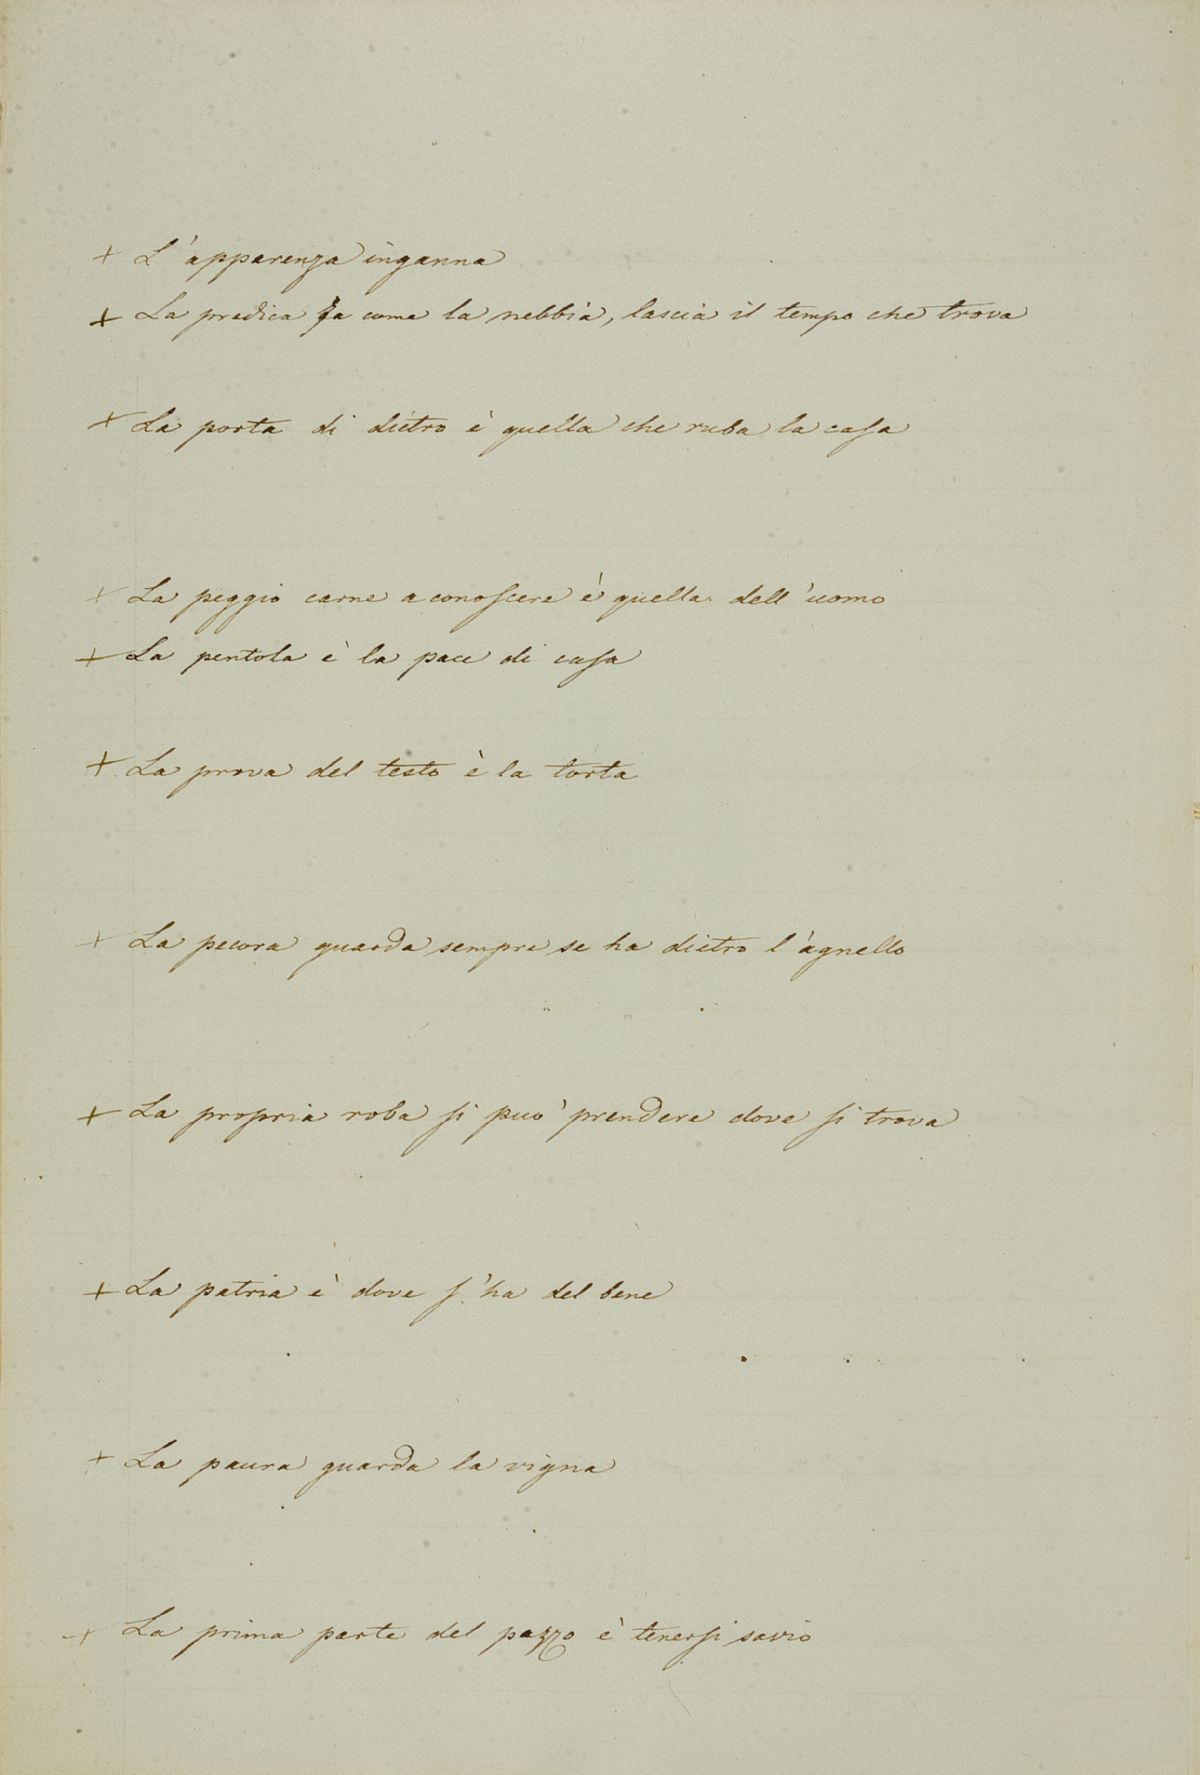 + L'apparenza inganna
+ La predica fa come la nebbia, lascia il tempo che trova
+ La porta di dietro è quella che ruba la casa
+ La peggio carne a conoscere è quella dell'uomo
+ La pentola è la pace di casa
+ La prova del testo è la torta
+ La pecora guarda sempre se ha dietro l'agnello
+ La propria roba si può prendere dove si trova
+ La patria è dove s'ha del bene
+ La paura guarda la vigna
+ La prima parte del pazzo è tenersi savio